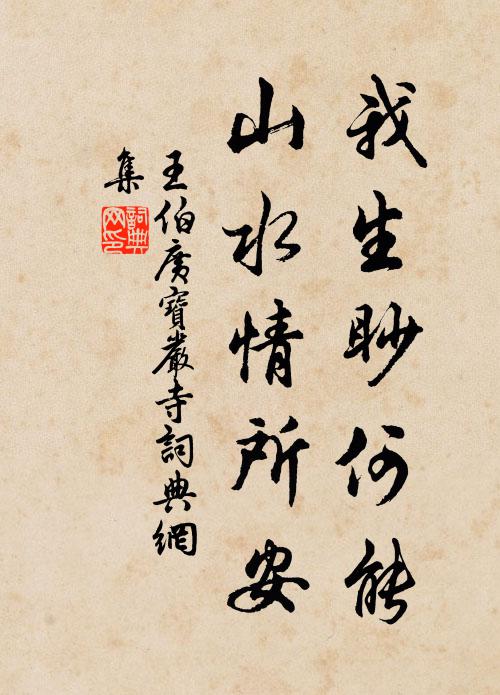 我生眇何能
山水情所安
王伯廣寶巖寺詞典網
集
詞典
网印